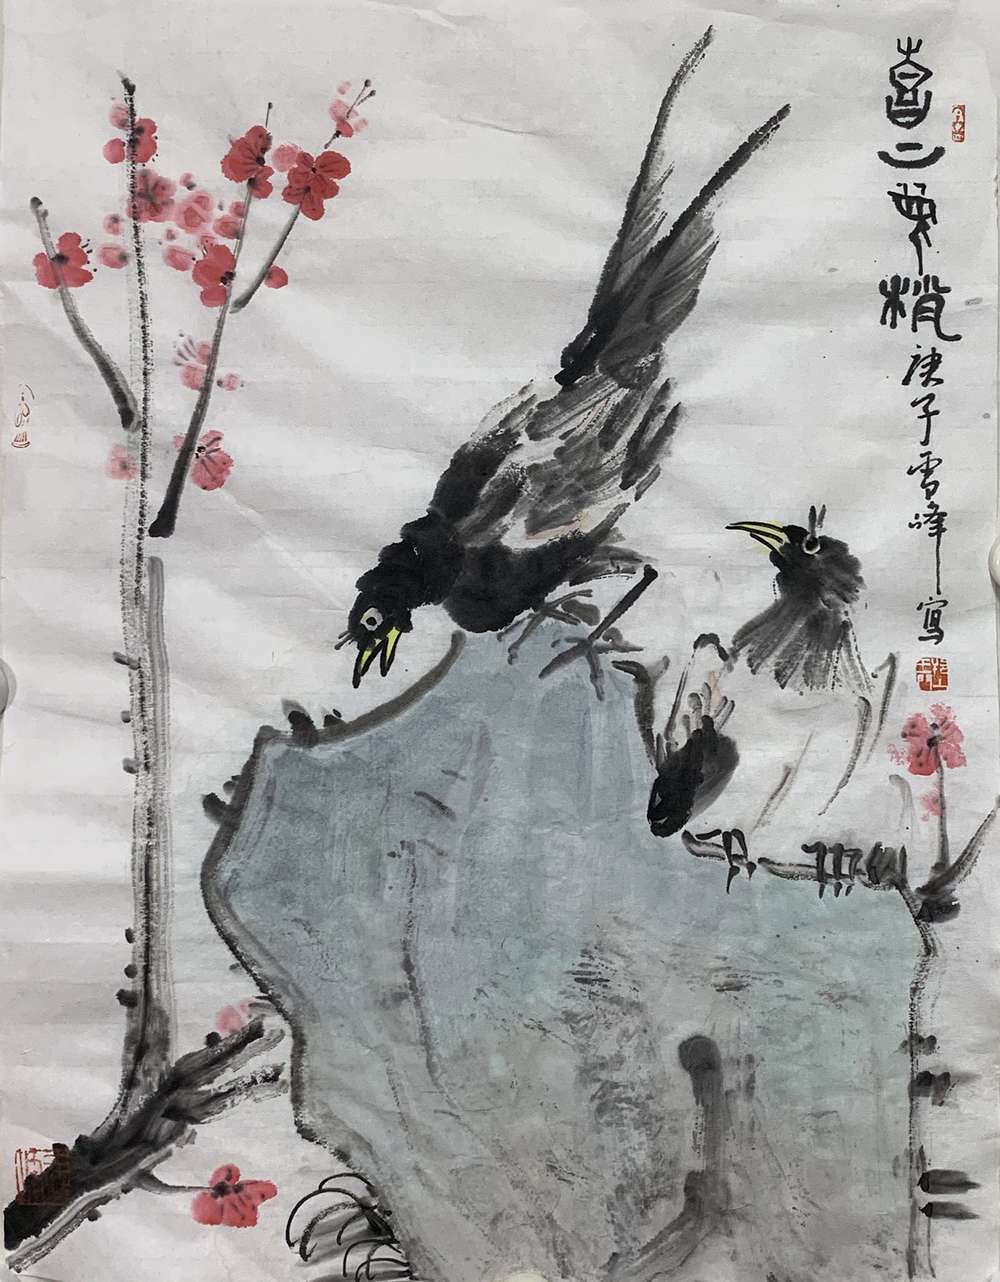 喜上眉梢
庚子雪峰写